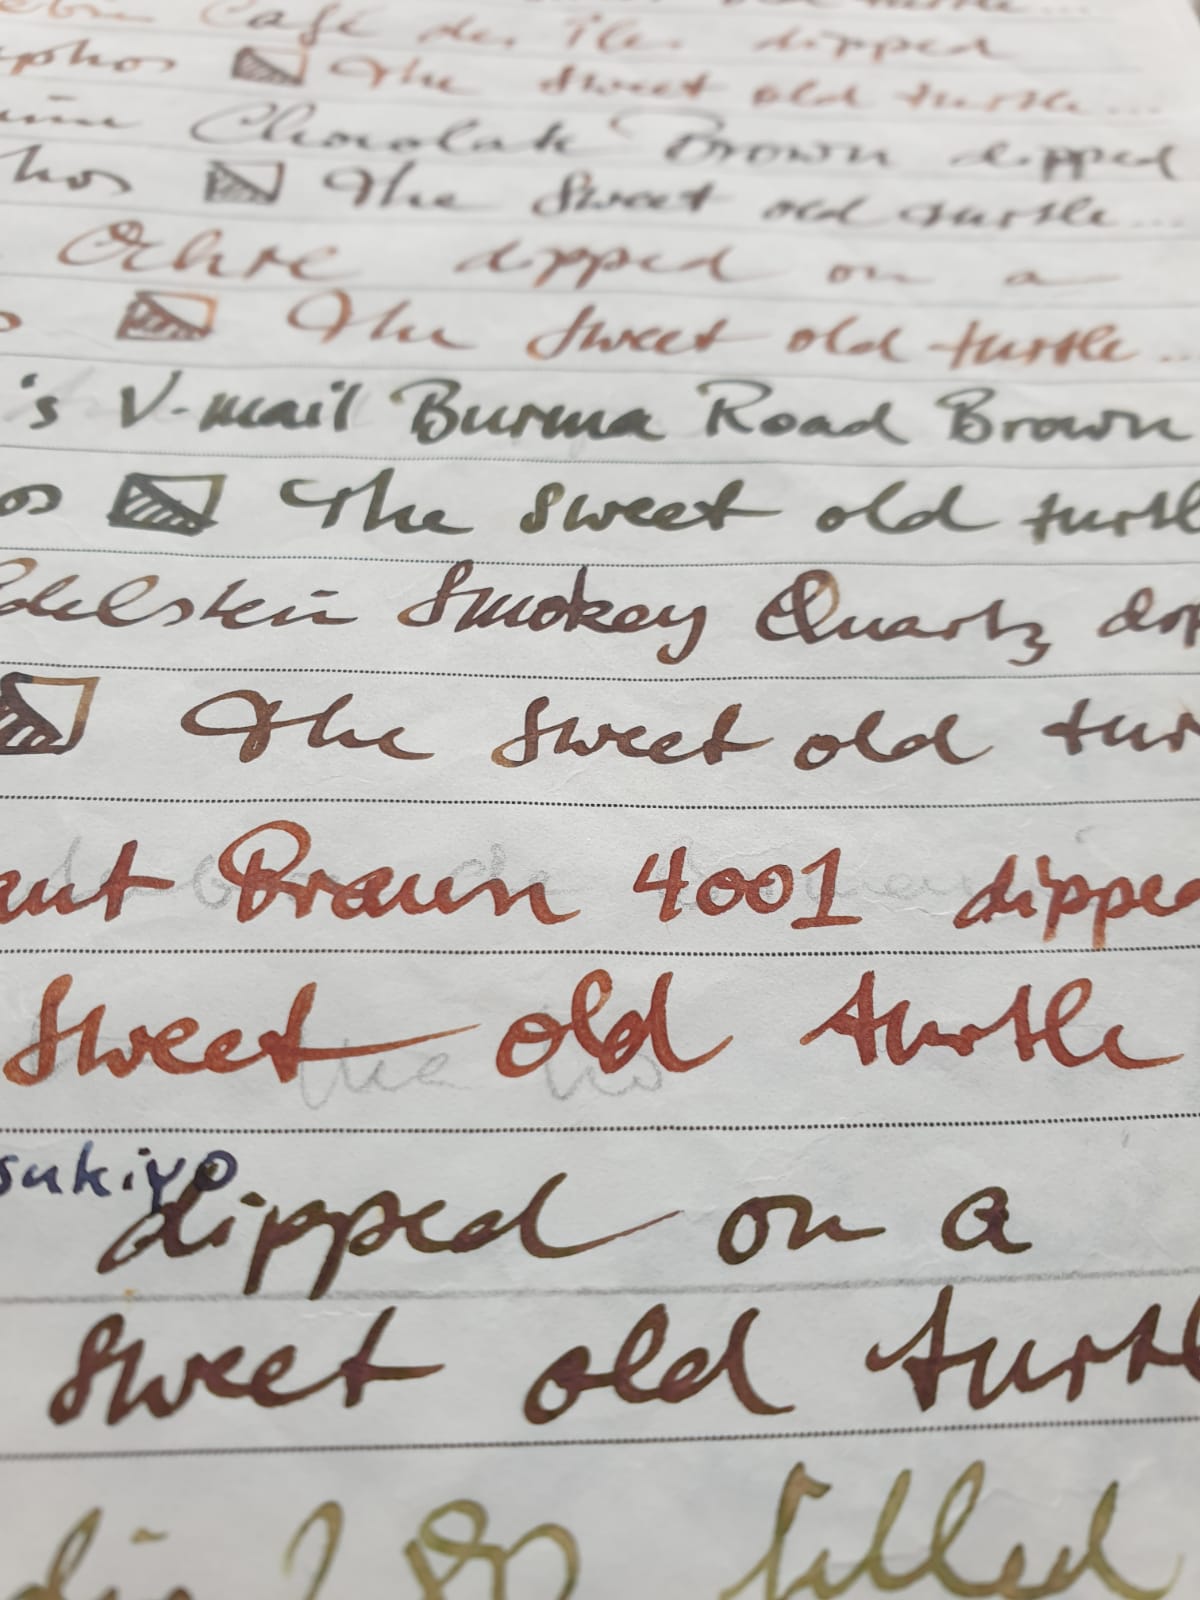 old turtle...
Café des Îles dipped
The sweet old turtle...
Chocolate Brown dipped
The sweet old turtle...
Ochre dipped on a
The sweet old turtle...
's V-mail Burma Road Brown
The sweet old turtl
Edelstein Smokey Quartz dip
The sweet old tur
ant Braun 4001 dipped
sweet old turtle
sukiyo
dipped on a
sweet old turtl
filled